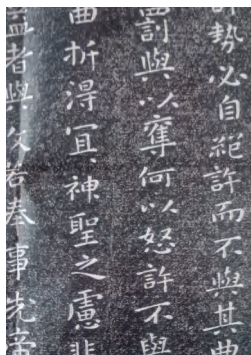 勢必自絕許而不與其曲
割與以奪何以怒許不與
曲折得宜神聖之慮非
益者與父若奉事先帝